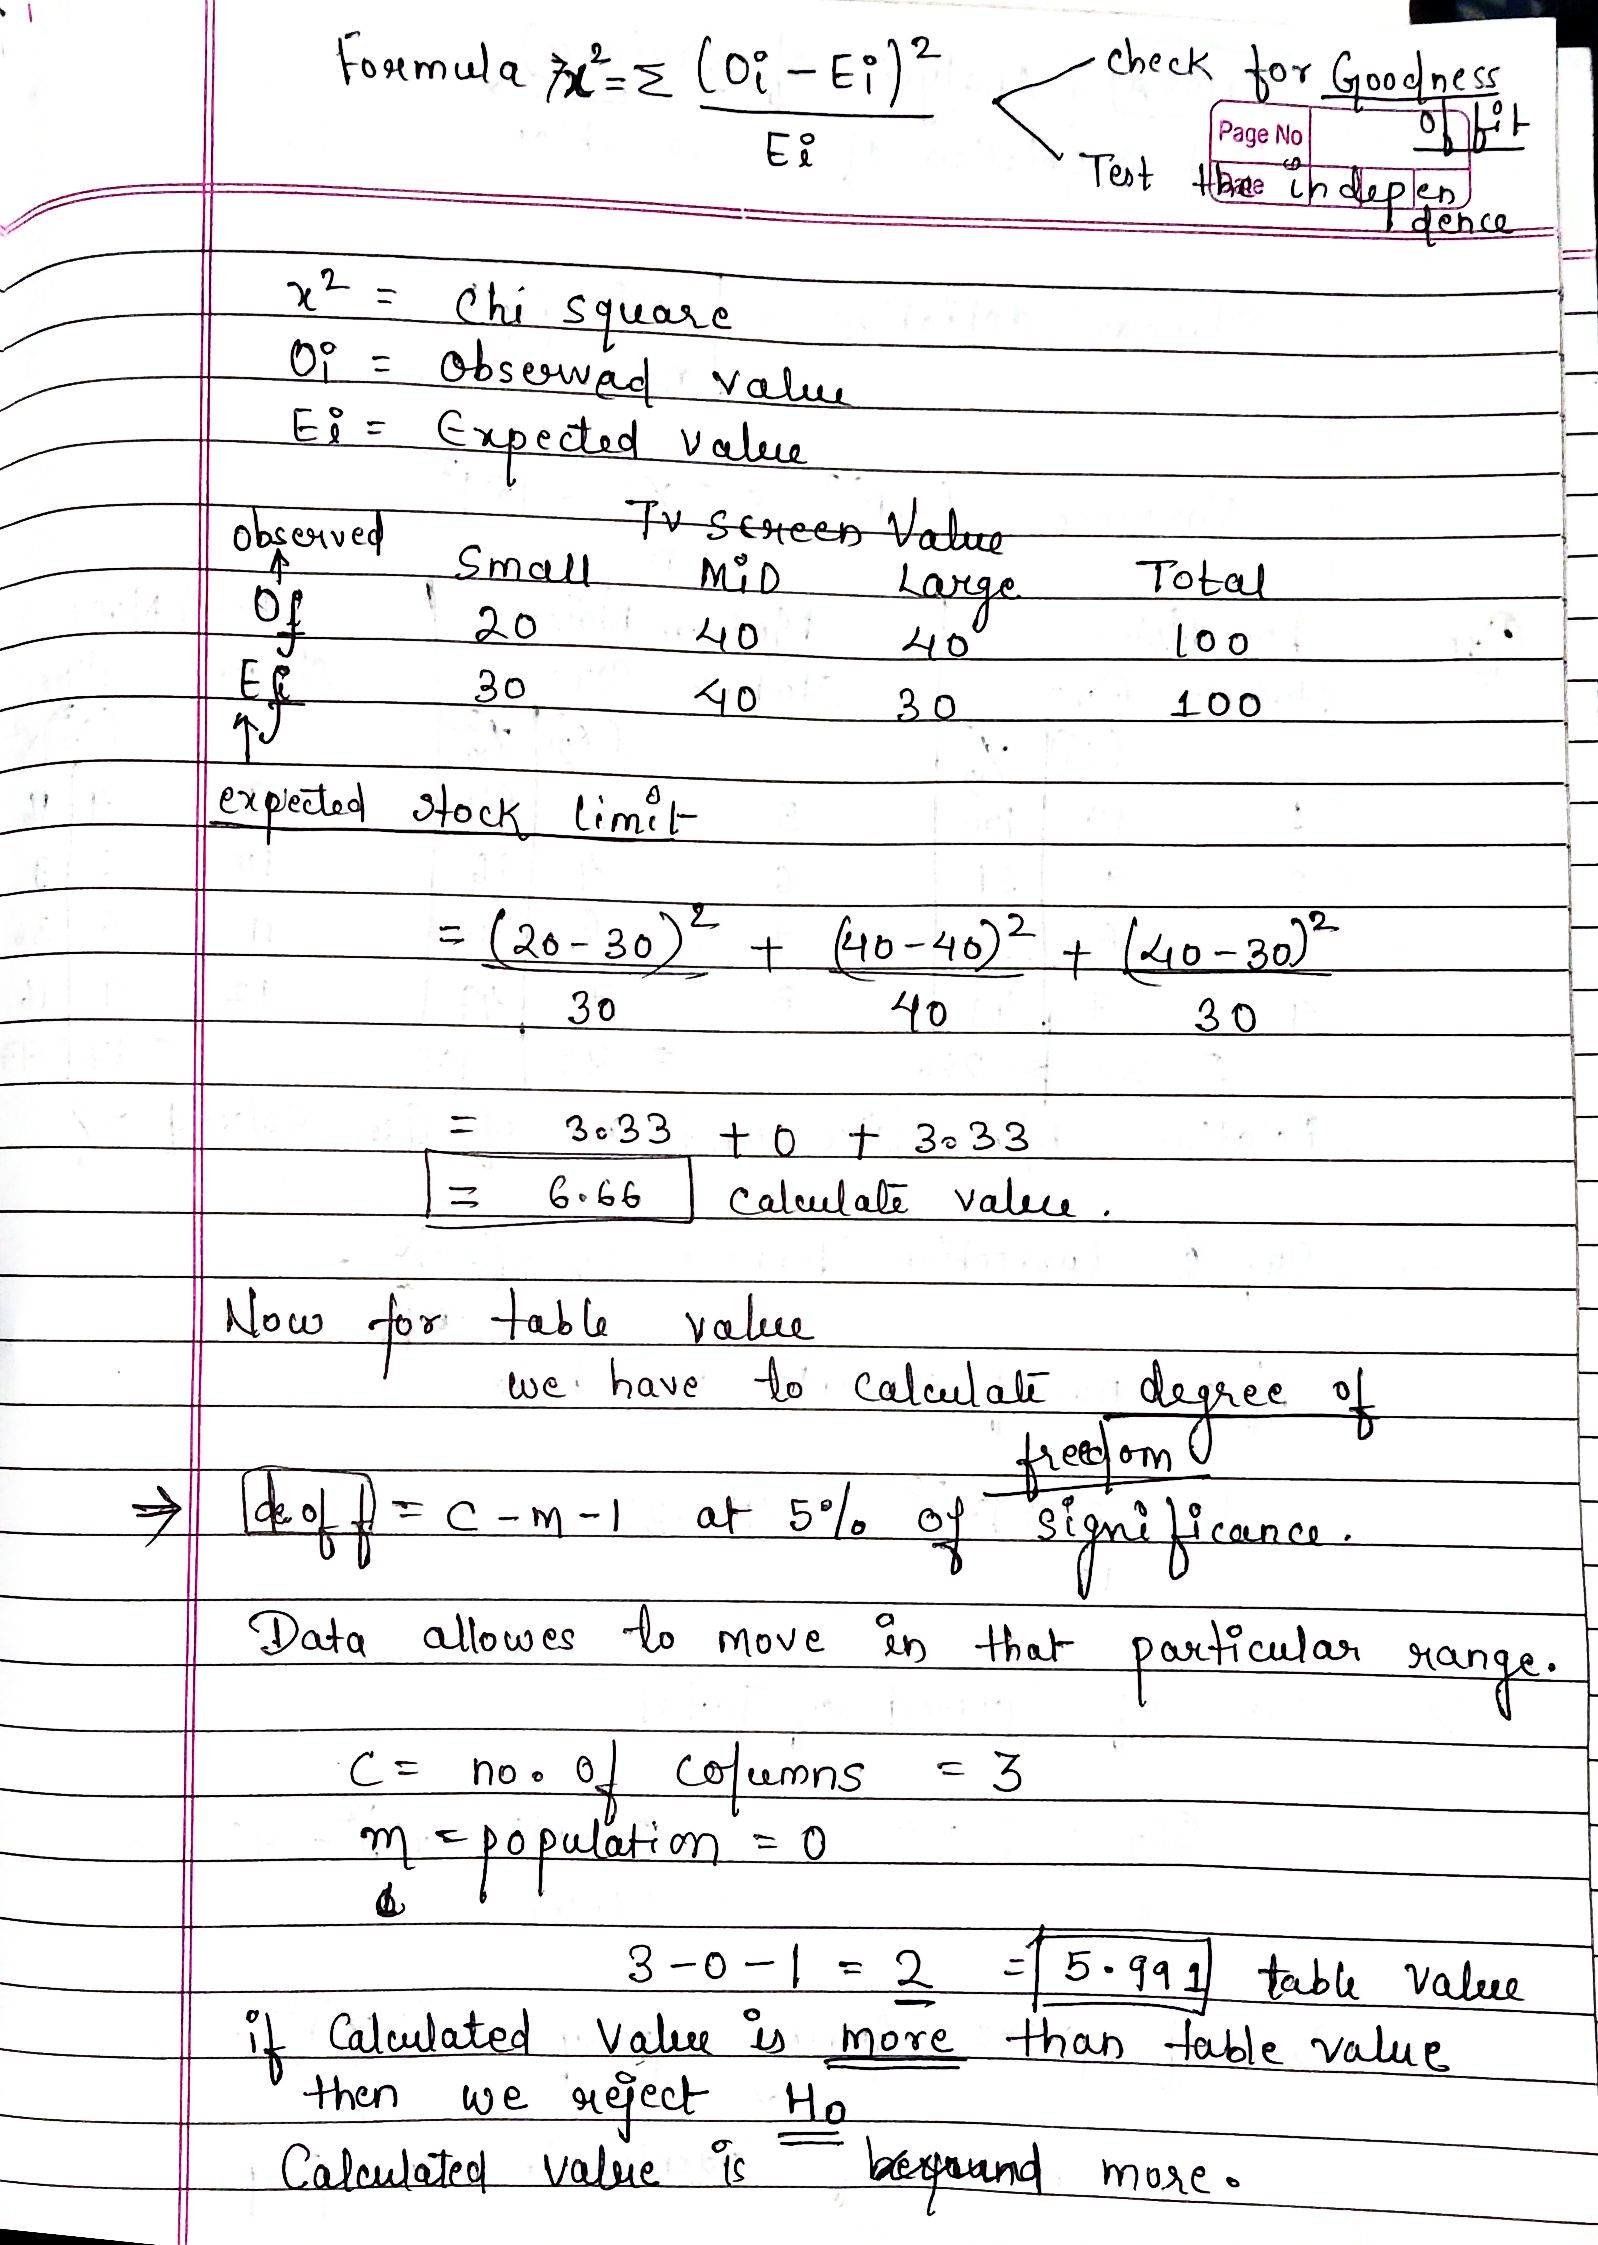 Formula → x² = Σ (Oi - Ei)² / Ei
check for Goodness of fit
Page No
Date
Test the indepen
dence
x² = Chi square
Oi = Observed value
Ei = Expected value
Tv Screen Value
observed
Small MiD Large Total
Of 20 40 40 100
Ef 30 40 30 100
expected stock limit
= (20-30)² / 30 + (40-40)² / 40 + (40-30)² / 30
= 3.33 + 0 + 3.33
= 6.66 calculate value.
Now for table value
we have to calculate degree of
freedom
⇒ d.of f = C - m - 1 at 5% of significance.
Data allowes to move in that particular range.
C = no. of columns = 3
m = population = 0
3-0-1 = 2 = 5.991 table value
if Calculated Value is more than table value
then we reject Ho
Calculated value is more.